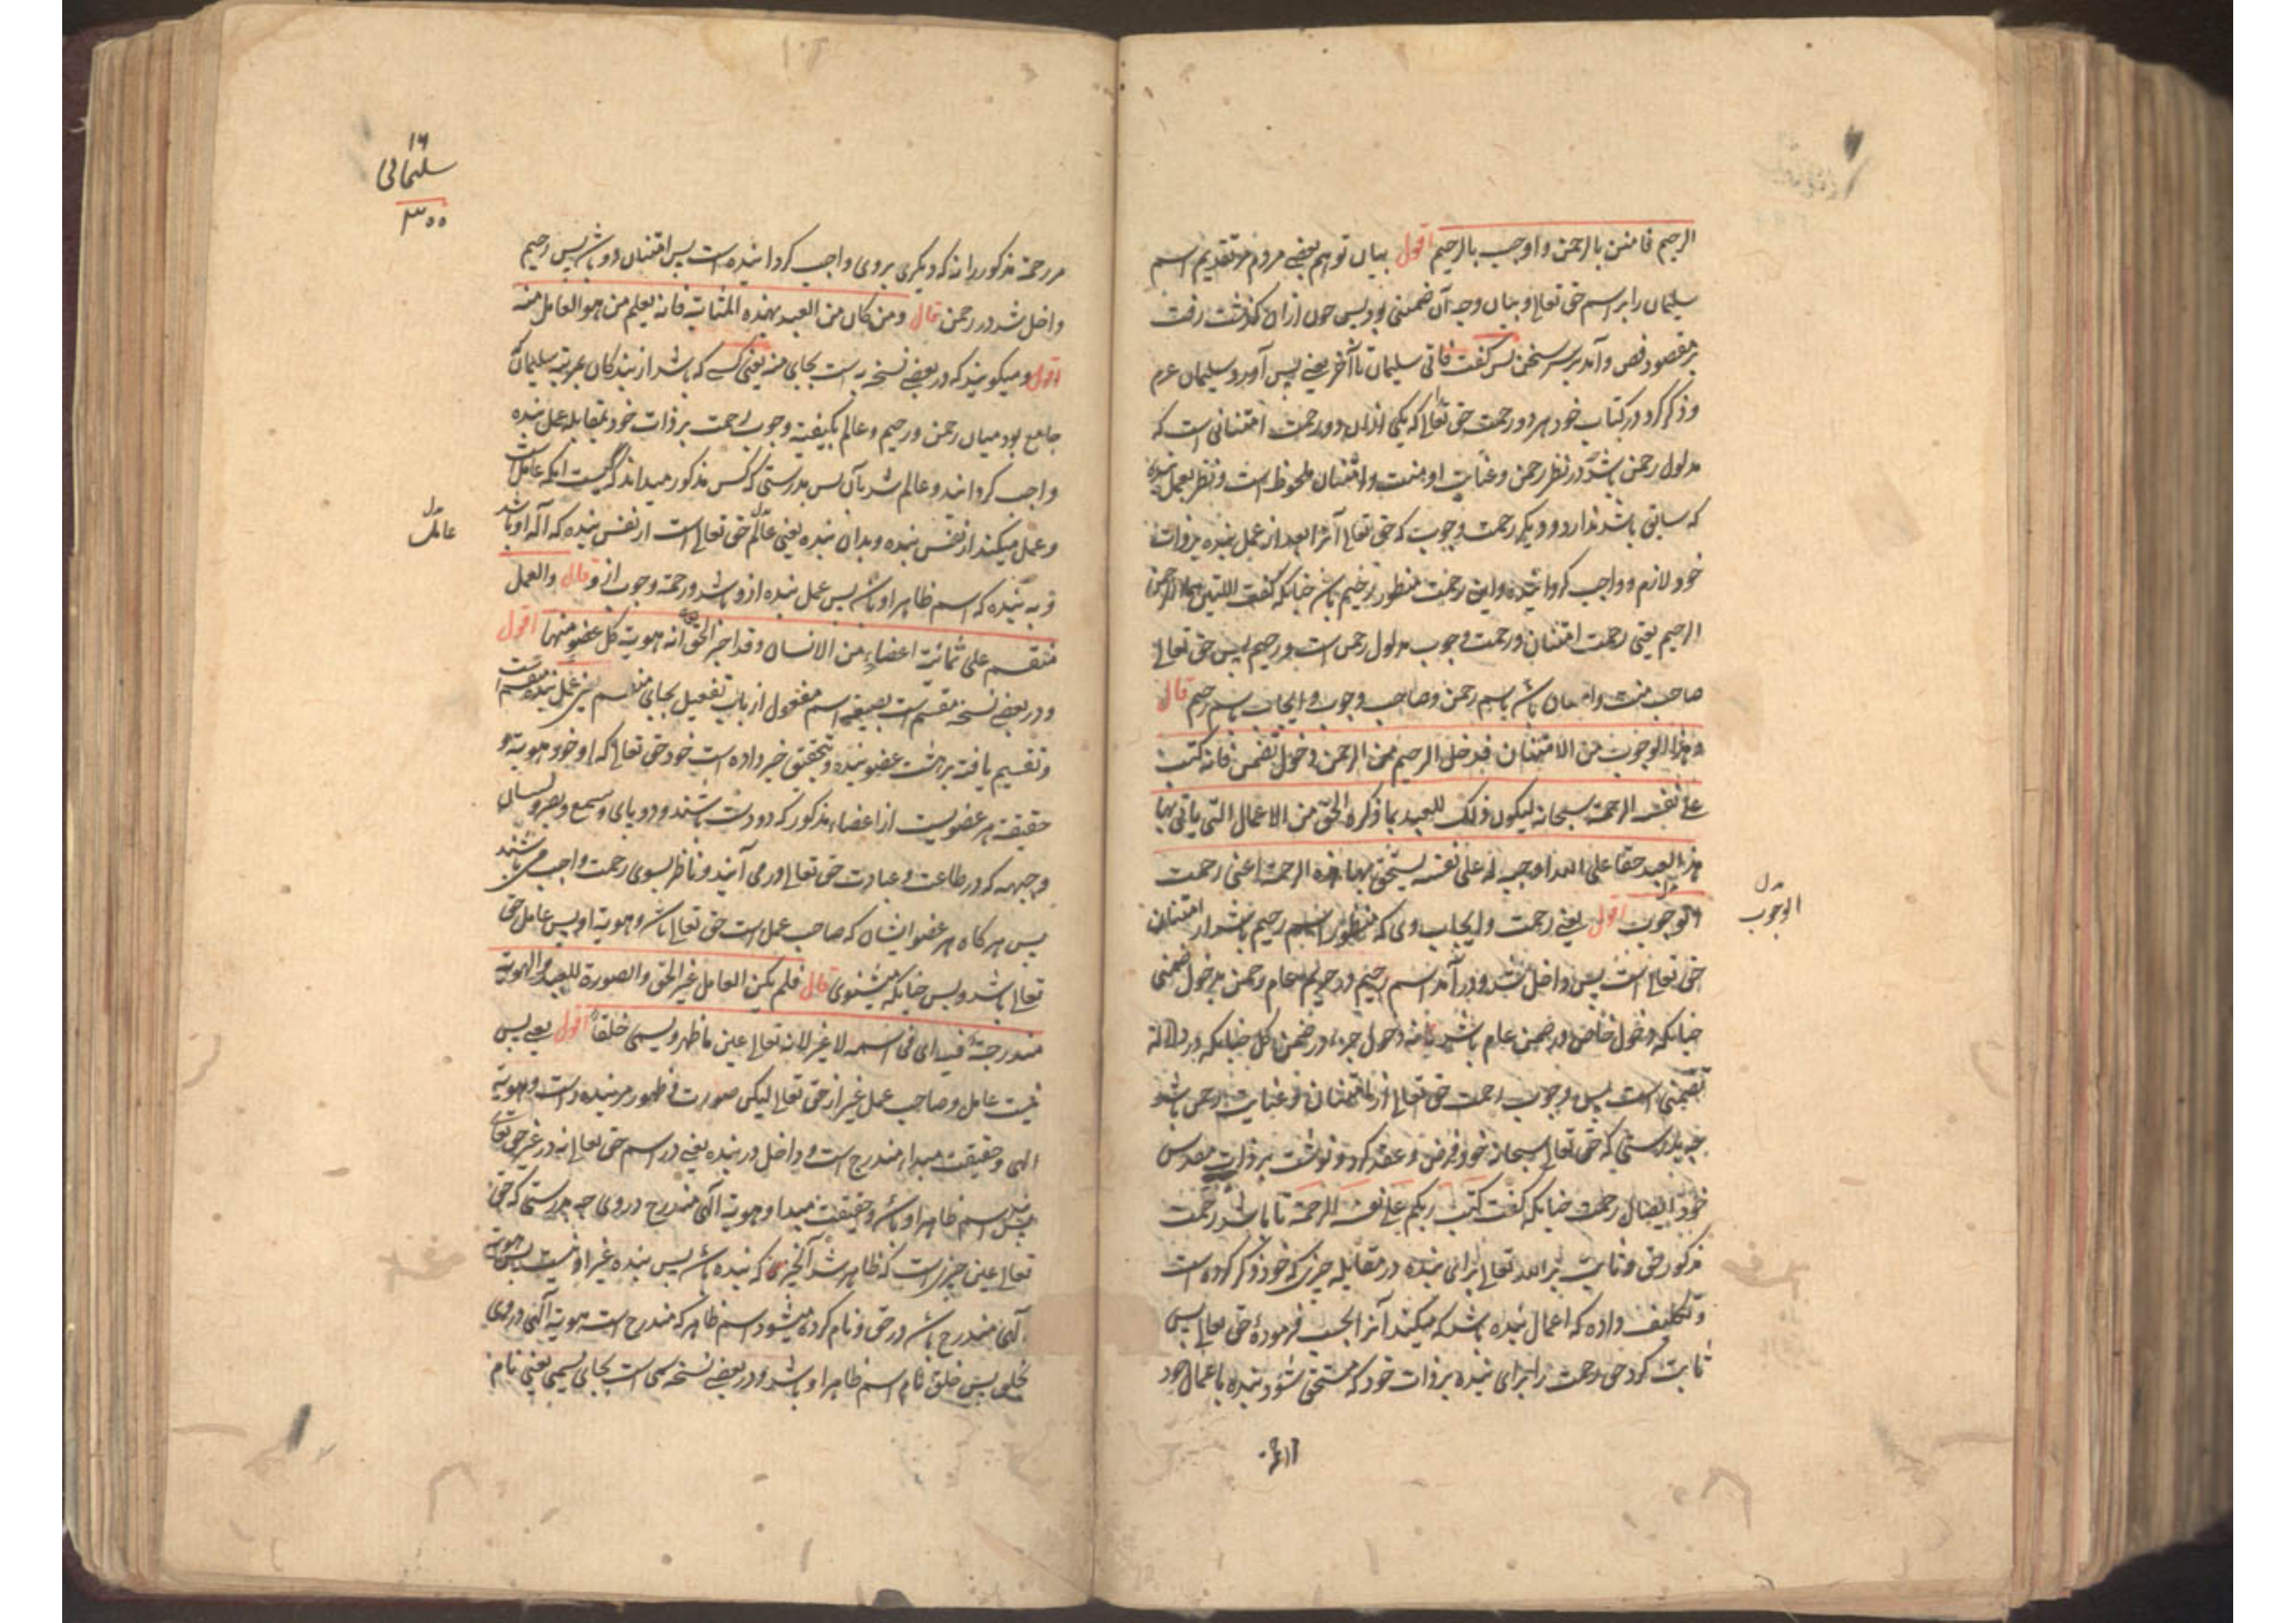 الرحیم فامتن بالرحمن واوجب بالرحیم اقول بیان توهم بعضے مردم در تقدیم اسم
سلیمان را بر اسم حق تعالے و بیان وجه آن ضمنی بود پس چون ازان گذشت رفت
بر مقصود فص و آمد بر سر سخن پس گفت فاتی سلیمان تا آخر یعنے پس آورد سلیمان
و ذکر کرد در کتاب خود هر دو رحمت حق تعالے که یکی ازان دو رحمت امتنانی است که
مدلول رحمن باشد در نظر رحمن و عنایت او منت و امتنان ملحوظ است و نظر بعمل بنده
که سابق باشد ندارد و دیگر رحمت وجوب که حق تعالے آنرا بعد از عمل بنده بر ذات
خود لازم و واجب گردانیده و این رحمت منظور رحیم باشد چنانکه گفت اللتین هما الرحمن
الرحیم یعنی رحمت امتنان و رحمت وجوب مدلول رحمن است و رحیم پس حق تعالے
صاحب منت و امتنان باشد باسم رحمن و صاحب وجوب و ایجاب باسم رحیم قال
وهذا الوجوب من الامتنان فدخل الرحیم من الرحمن دخول تضمن فانه کتب
علے نفسه الرحمة سبحانه لیکون ذلک للعبد بما ذکره الحق من الاعمال التی یاتی بها
هذا العبد حقا علی الله اوجبه له علی نفسه یستحق بها هذه الرحمة اعنی رحمت
الوجوب اقول یعنے رحمت و ایجاب وی که منظور اسم رحیم باشد از امتنان
الوجوب
حق تعالے است پس داخل شد و در آمد اسم رحیم در عام رحمن بدخول ضمنی
چنانکه دخول خاص در ضمن عام باشد یا نه دخول جزء در ضمن کل چنانکه در دلاله
تضمنی است پس وجوب رحمت حق تعالے از امتنان و عنایت رحمن باشد
چه بدرستی که حق تعالے سبحانه خود فرض و عقد کرد و نوشت بر ذات مقدس
خود ایصال رحمت چنانکه گفت کتب ربکم علے نفسه الرحمة تا باشد رحمت
مذکور حق و ثابت بر الله تعالے برای بنده در مقابله چیزی که خود ذکر کرده است
و تکلیف داده که اعمال بنده باشد که میکند آنرا بحسب فرمودۀ حق تعالے پس
ثابت کرد حق رحمت را برای بنده بر ذات خود که مستحق شود بنده باعمال خود
۱۶
سلیمانی
۳۰۰
مر رحمة مذکور را نه که دیگری بروی واجب گردانیده است پس امتنان در باشد پس رحیم
داخل شد در رحمن قال ومن کان من العبید بهذه المثابة فانه یعلم من هو العامل منه
اقول و میگویند که در بعضے نسخه به است بجای منه یعنی کسے که باشد از بندگان بمرتبه سلیمان که
جامع بود میان رحمن و رحیم و عالم بکیفیة وجوب رحمت بر ذات خود بمقابله عمل بنده
واجب گردانید و عالم شد بآن پس بدرستی که کس مذکور میداند که کیست آنکه عامل است
و عمل میکند از نفس بنده و بدان بنده یعنی عالم حق تعالے است از نفس بنده که آله او باشد
عامل
و به بنده که اسم ظاهر او باشد پس عمل بنده ازو باشد و رحمة وجوب ازو قال والعمل
منقسم علی ثمانیة اعضاء من الانسان وقد اخبر الحق انه هویة کل عضو منها اقول
و در بعضے نسخه مقسم است بصیغه اسم مفعول از باب تفعیل بجای منقسم یعنی عمل بنده منقسم است
و تقسیم یافته بر هشت عضو بنده و بتحقیق خبر داده است خود حق تعالے که او خود هویة و
حقیقة هر عضویست از اعضاء مذکور که دو دست باشند و دو پای و سمع و بصر و لسان
و جبهه که در طاعت و عبادت حق تعالے در می آیند و ناظر بسوی رحمت واجب می باشند
پس هر گاه هر عضو ایشان که صاحب عمل است حق تعالے باشد و هویة او پس عامل حق
تعالے باشد و بس چنانکه میشنوی قال فلم یکن العامل غیر الحق والصورة للعبد والهویة
مندرجة فیه ای فی اسمه لا غیر لانه تعالے عین ما ظهر ویسمی خلقا اقول یعنے پس
نیست عامل و صاحب عمل غیر از حق تعالے لیکن صورت و ظهور مر بنده راست و هویة
الهی و حقیقت مبداء مندرج است و داخل در بنده یعنے در اسم حق تعالے نه در غیر حق تعالے
بنده اسم ظاهر او باشد و حقیقت مبدا و هویة الهی مندرج در وی چه بدرستی که حق
تعالے عین چیزی است که ظاهر شد که بنده باشد پس بنده غیر او نیست پس هویة
الهی مندرج باشد در حق و نام کرده میشود اسم ظاهر که مندرج است هویة الهی در وی
بخلق پس خلق نام اسم ظاهر او باشد و در بعضے نسخه سمی است بجای یسمی یعنی نام